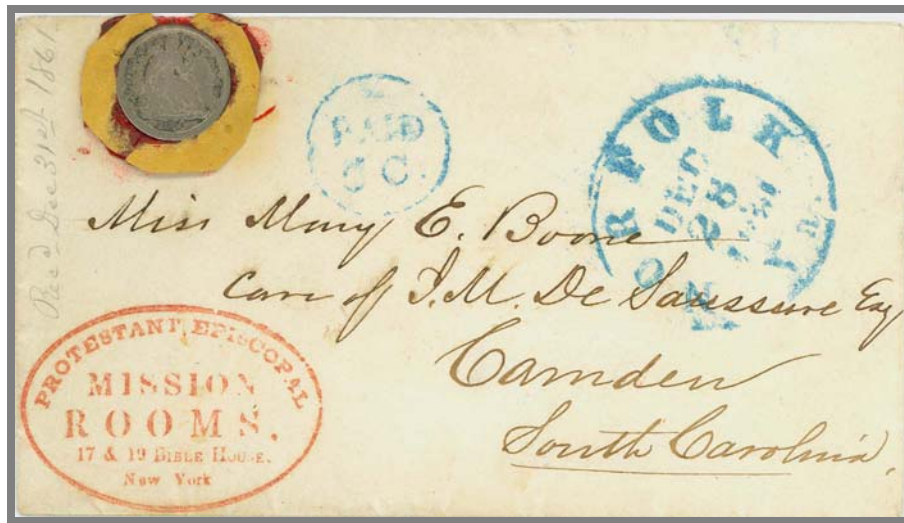 Rec'd Dec 31st 1861
PAID
5 C.
NORFOLK
DEC
28
1861
Va.
Miss Mary E. Boone
Care of J.M. De Saussure Esq
Camden
South Carolina.
PROTESTANT EPISCOPAL
MISSION
ROOMS.
17 & 19 BIBLE HOUSE.
New York